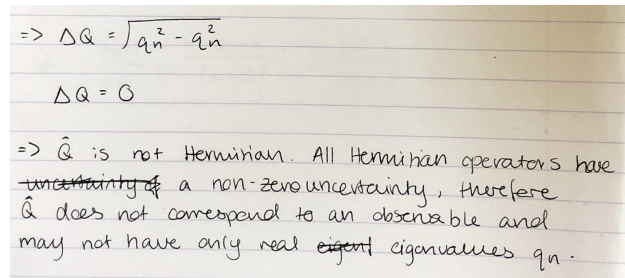 => ΔQ = √(qn² - qn²)
ΔQ = 0
=> Q̂ is not Hermitian. All Hermitian operators have
uncertainty of a non-zero uncertainty, therefore
Q̂ does not correspond to an observable and
may not have only real eigent eigenvalues qn.